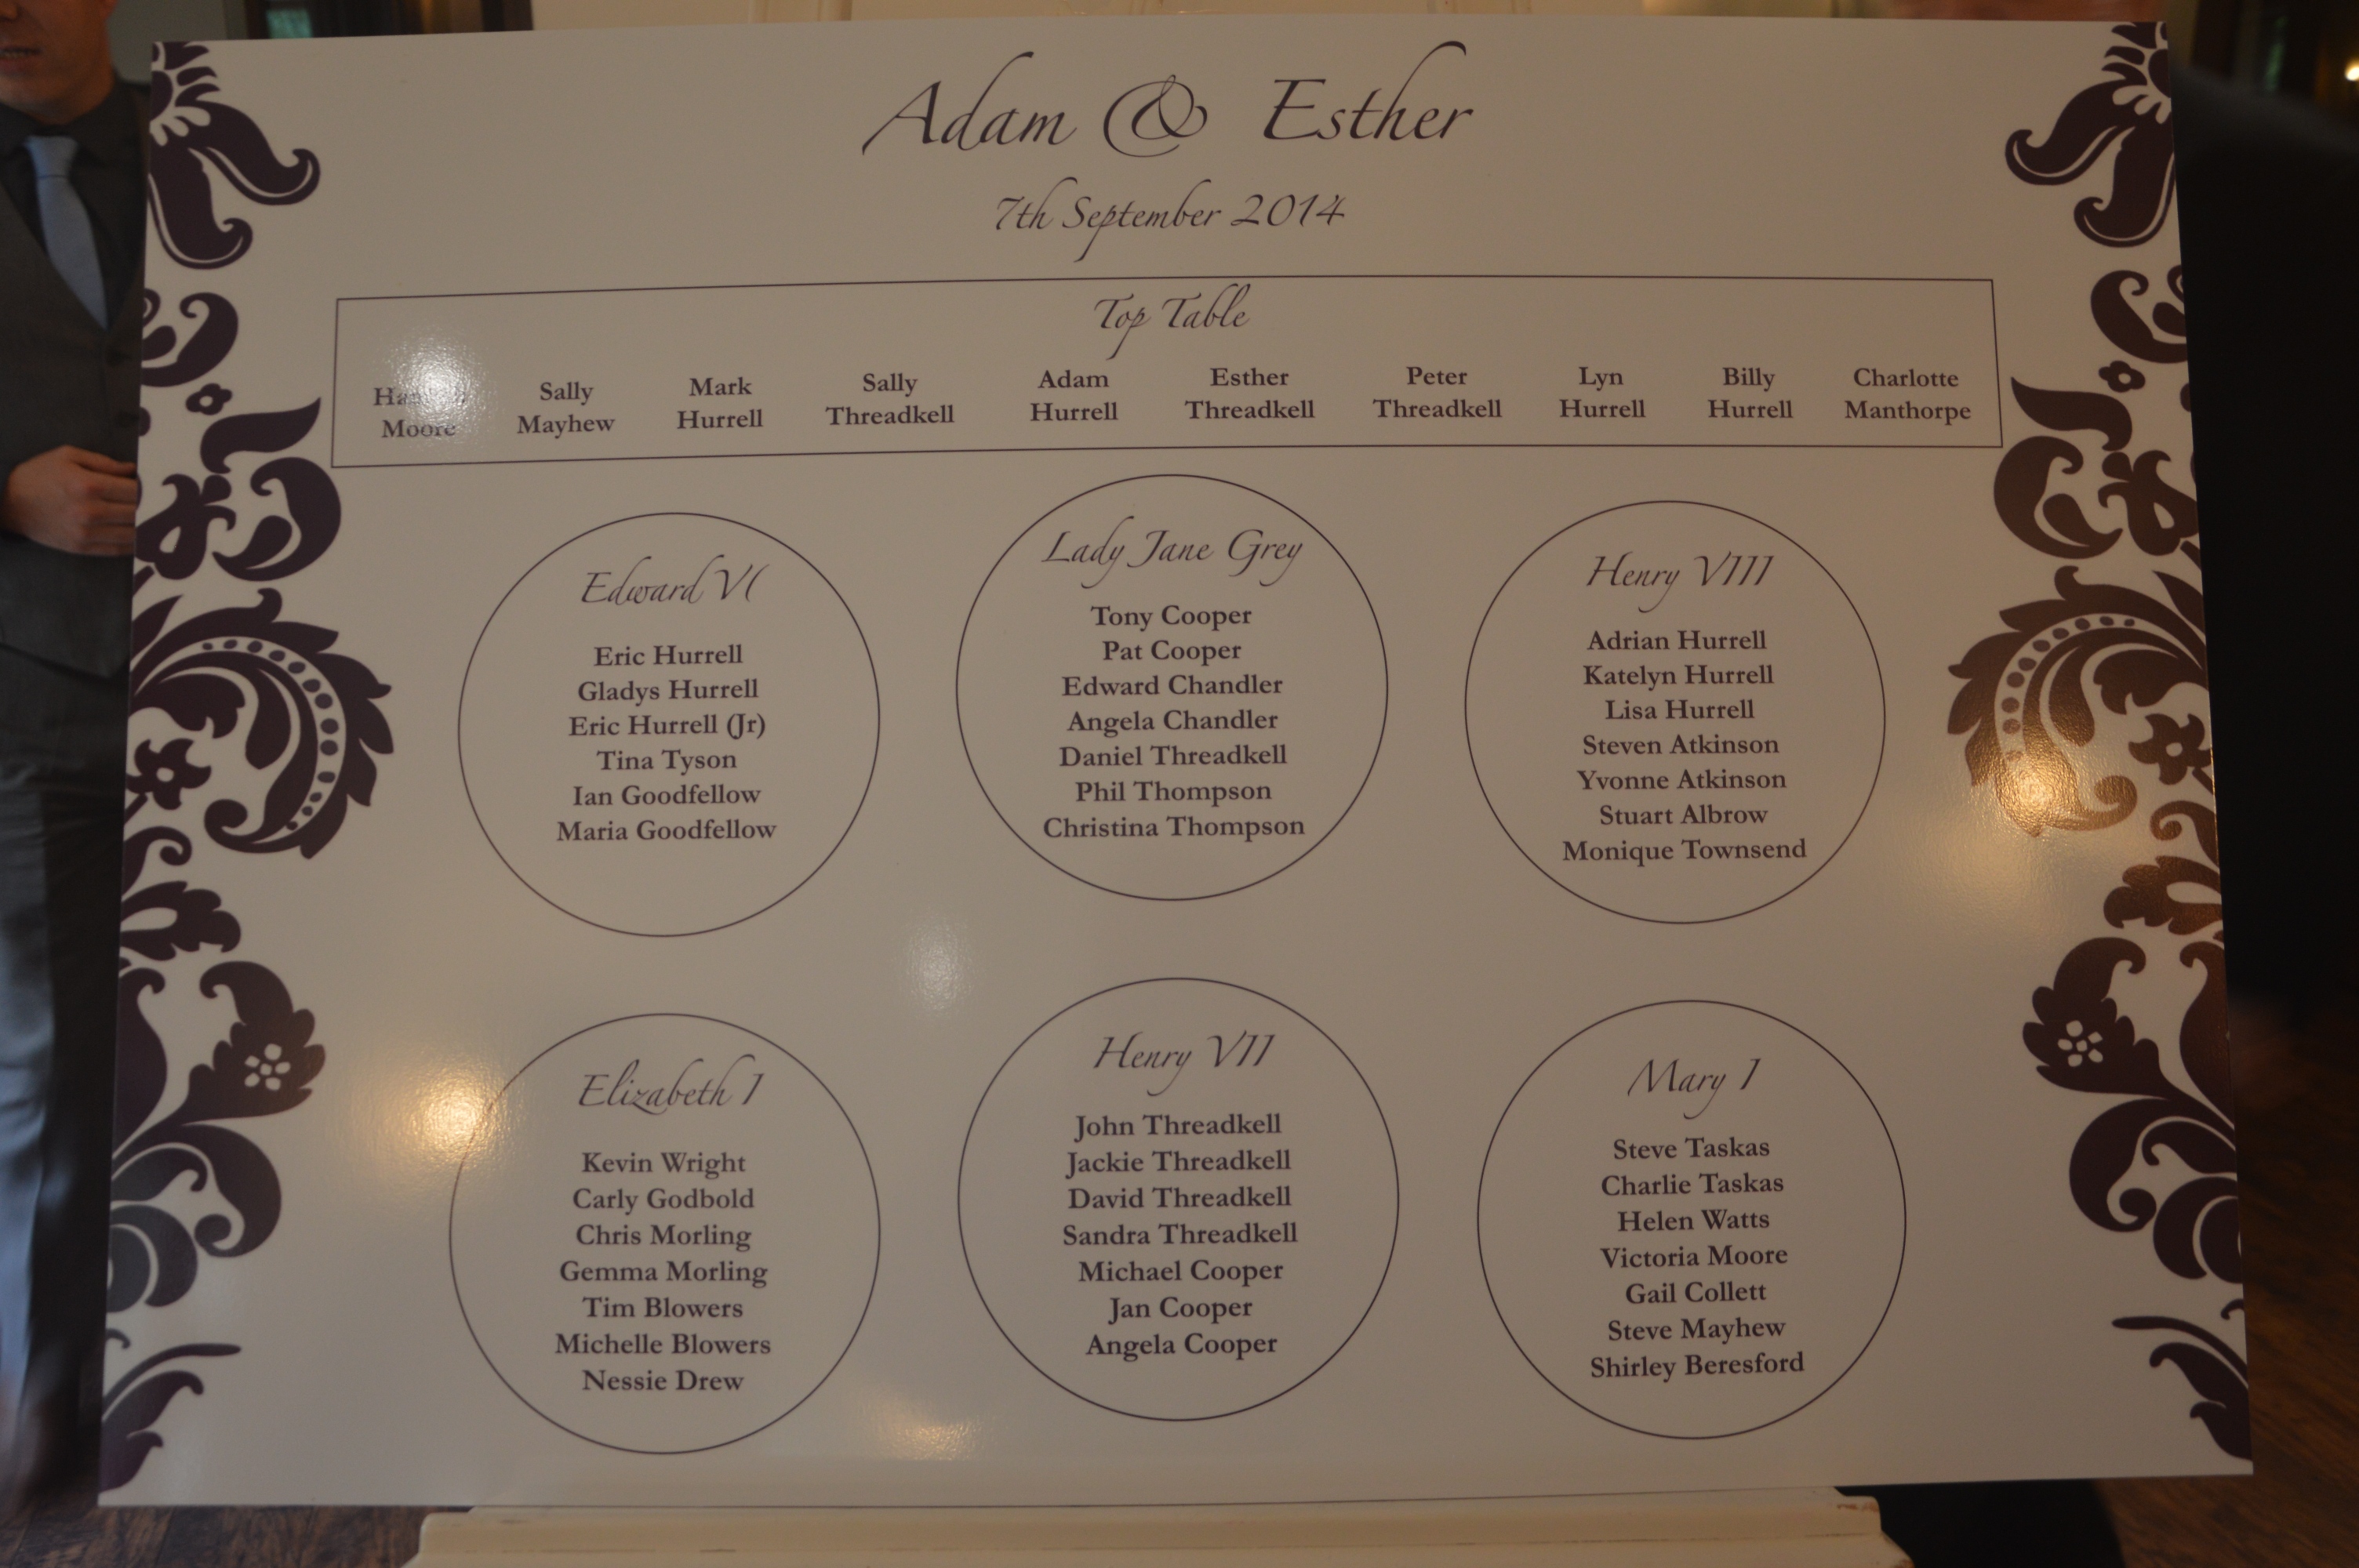 Adam & Esther
7th September 2014
Top Table
Moore
Sally Mayhew
Mark Hurrell
Sally Threadkell
Adam Hurrell
Esther Threadkell
Peter Threadkell
Lyn Hurrell
Billy Hurrell
Charlotte Manthorpe
Edward VI
Eric Hurrell
Gladys Hurrell
Eric Hurrell (Jr)
Tina Tyson
Ian Goodfellow
Maria Goodfellow
Lady Jane Grey
Tony Cooper
Pat Cooper
Edward Chandler
Angela Chandler
Daniel Threadkell
Phil Thompson
Christina Thompson
Henry VIII
Adrian Hurrell
Katelyn Hurrell
Lisa Hurrell
Steven Atkinson
Yvonne Atkinson
Stuart Albrow
Monique Townsend
Elizabeth I
Kevin Wright
Carly Godbold
Chris Morling
Gemma Morling
Tim Blowers
Michelle Blowers
Nessie Drew
Henry VII
John Threadkell
Jackie Threadkell
David Threadkell
Sandra Threadkell
Michael Cooper
Jan Cooper
Angela Cooper
Mary I
Steve Taskas
Charlie Taskas
Helen Watts
Victoria Moore
Gail Collett
Steve Mayhew
Shirley Beresford